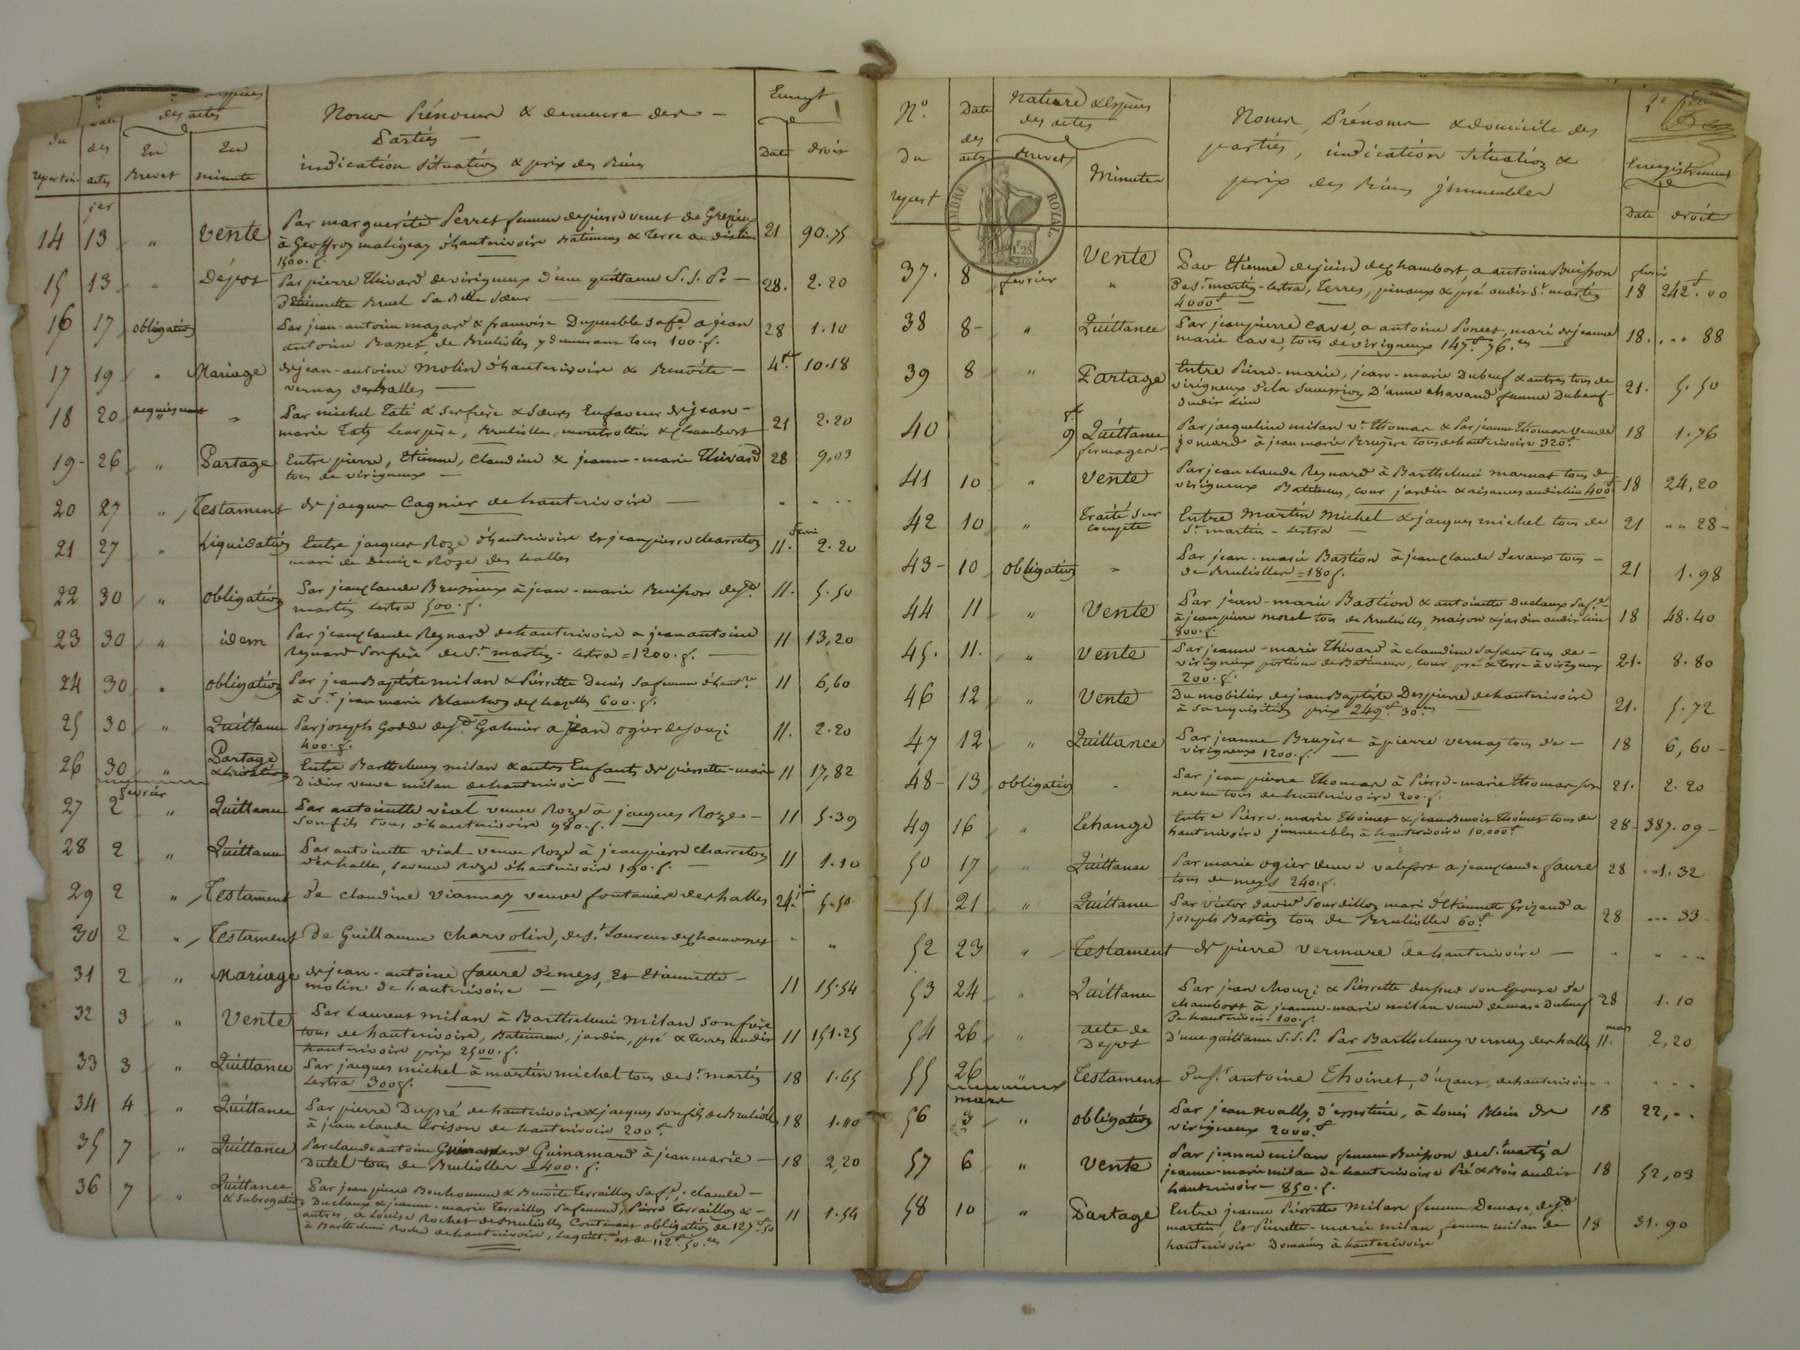 du repertoire
date des actes
des actes
En Brevet
En minute
Noms Prénoms & demeure des -
Parties
indication Situation & prix des Biens
Enregt
Date
droit
jer
14 13 " Vente Par marguerite Perret femme de pierre venet de
à Geoffroy d'hauterivoire Batimens & Terre au dit lieu 21 90.75
1500.f.
15 13 " Dépot Par pierre Thivard de virigneux d'une quittance S.S.P. - 28. 2.20
d'Etiennette sa Sœur
16 17 obligation Par jean-antoine mazard & françoise Dupeuble sa fe. a jean 28 1.10
antoine de Brullioles y demeurans tous 100.f.
17 19 " Mariage de jean-antoine Molin d'hauterivoire & Benoite - 4. 10.18
vernay des halles -
18 20 acquiescement " Par michel & ses frère & sœurs En faveur de jean-
marie leur père, Brullioles, montrottier & Chambost 21 2.20
19- 26 " Partage Entre pierre, Etienne, Claudine & jeanne-marie Thivard 28 9,03
tous de virigneux -
20 27 " Testament de jacques Cagnier de hauterivoire -
21 27 " Liquidation Entre jacques Roze d'hauterivoire & jean pierre charreton 11. 2.20
mari de Roze des halles
22 30 " obligation Par jean Claude à jean-marie Buisson de St. 11. 5.50
martin Lestra 500.f.
23 30 " idem Par jean Claude Reynard de hauterivoire a jean antoine 11 13,20
Reynard son frère de St. martin-Lestra = 1200.f. -
24 30 " obligation Par jean Baptiste milan & Pierrette Denis sa femme d'haut.re 11 6,60
à Sr. jean marie des hazelles 600.f.
25 30 " Quittance Par joseph de St. Galmier a jean ogier de 11. 2.20
400.f.
26 30 " Partage Entre Barthelemy milan & autres Enfants de pierrette-marie 11 17,82
Didier veuve milan de hauterivoire
fevrier
27 2 " Quittance Par antoinette vial veuve Roze à jacques Roze - 11 5.39
son fils tous d'hauterivoire 980.f.
28 2 " Quittance Par antoinette vial-veuve Roze à jean pierre charreton 11 1.10
des halles, la veuve Roze d'hauterivoire 190.f. -
29 2 " Testament de claudine viannay veuve fontanière des halles 24. 5.50
30 2 " Testament De Guillaume Charvolin, de St. Laurent de chamousset " "
31 2 " Mariage de jean-antoine faure de meys, Et Etiennette - 11 15.54
molin de hauterivoire -
32 3 " Vente Par Laurent milan à Barthelemi milan son frère
tous de hauterivoire, Batimens, jardin, pré & terres audit 11 151.25
hauterivoire prix 2500.f.
33 3 " Quittance Par jacques michel à martin michel tous de St. martin 18 1.65
Lestra 300f.
34 4 " Quittance Par pierre Dupré de hauterivoire & jacques son fils de Brullioles 18 1.10
à jean claude de hauterivoire 200f.
35 7 " Quittance Par claude antoine Guinamard à jean marie - 18 2,20
Dutel tous de Brullioles 400.f.
36 7 " Quittance & subrogation Par jean pierre Bonhomme & Benoite Terraillon sa fe. claude -
Duclaux & jeanne-marie Terraillon sa femme, Pierre Terraillon & -
autres, a Louise Rochet de Brullioles Contenant obligation de 127f.50 11 1.54
à Barthelemi Roche de hauterivoire, la quitt.e est de 112f.50.es
No. du repert
Date des actes
Nature & Espèces des actes
Brevets
Minutes
Noms, Prénoms & domicile des
parties, indication situation &
prix des Biens jmmeubles
2e
Enregistrement
Date
droit
TIMBRE ROYAL
37. 8 fevrier " Vente Par Etienne de chambost, a antoine Buisson fevrier
De St. martin-Lestra, Terres, pinaux & pré audit St. martin 18 242f.00
4000f
38 8- " Quittance Par jean pierre Cave, a antoine Poncet, mari de jeanne 18. ... 88
marie Cave, tous de virigneux 147f.76.es
39 8 " Partage Entre Pierre-marie, jean-marie Dubeuf & autres tous de 21. 5.50
virigneux de la succession D'anne chavand femme Dubeuf
dudit Lieu
40 9 Quittance Par jacqueline milan ve. Thomas & Par jeanne Thomas veuve 18 1.76
fermages - jomard à jean marie Bruyere tous de hauterivoire 320f
41 10 " Vente Par jean claude Reynard à Barthelemi marnas tous de
virigneux Batimens, cour jardin & aisances audit lieu 400f 18 24,20
42 10 " Traité sur compte Entre Martin Michel & jacques michel tous de 21 " " 28-
St. martin-Lestra -
43- 10 obligation " Par jean-marie Bastion à jean Claude Devaux tous - 21 1.98
de Brullioles = 180f.
44 11 " Vente Par jean-marie Bastion & antoinette Duclaux sa fe.
à jean pierre morel tous de Brullioles, maison & jardin audit lieu 18 48.40
800.f.
45. 11. " Vente Par jeanne-marie Thivard à claudine sa sœur tous de -
virigneux portion de Batimens, cour, pré & terre à virigneux 21. 8.80
200.f.
46 12 " Vente Du mobilier de jean Baptiste Despierre de hauterivoire
à sa requisition prix 249f.30.es 21. 5.72
47 12 " Quittance Par jeanne Bruyère à pierre vernay tous de - 18 6,60-
virigneux 1200.f. -
48- 13 obligation " Par jean pierre Thomas à Pierre-marie Thomas son 21. 2.20
neveu tous de hauterivoire 200.f.
49 16 " Echange Entre Pierre-marie Thoinet & jean Benoit Thoinet tous de 28- 387.09-
hauterivoire jmmeubles à hauterivoire 10,000f
50 17 " Quittance Par marie ogier veuve a jean claude faure 28 ..1.32
tous de meys 240.f.
51 21 " Quittance Par victor david Sourdillon mari d'Etiennette Grizaud a 28 ... 33-
joseph Bastion tous de Brullioles 60f
52 23 " Testament de pierre vermare de hauterivoire -
53 24 " Quittance Par jean & Pierrette son Epouse de 28 1.10
chambost à jeanne-marie milan veuve de marc Dubeuf
De hauterivoire 100.f.
54 26 " acte de Depot D'une quittance S.S.P. Par Barthelemy vernay des halles 11. mars 2,20
55 26 " Testament De Sr. antoine Thoinet, de hauterivoire
mars
56 3 " obligation Par jean d'essertine, à Louis Blein de 18 22,..
virigneux 2000.f
57 6 " Vente Par jeanne milan femme Buisson de St. martin a
jeanne-marie milan de hauterivoire Pré & Bois audit 18 52,03
hauterivoire - 850.f.
58 10 " Partage Entre jeanne Pierrette Milan femme Demare de St.
martin, Et Pierrette-marie milan femme milan de 18 31.90
hauterivoire Domaines à hauterivoire